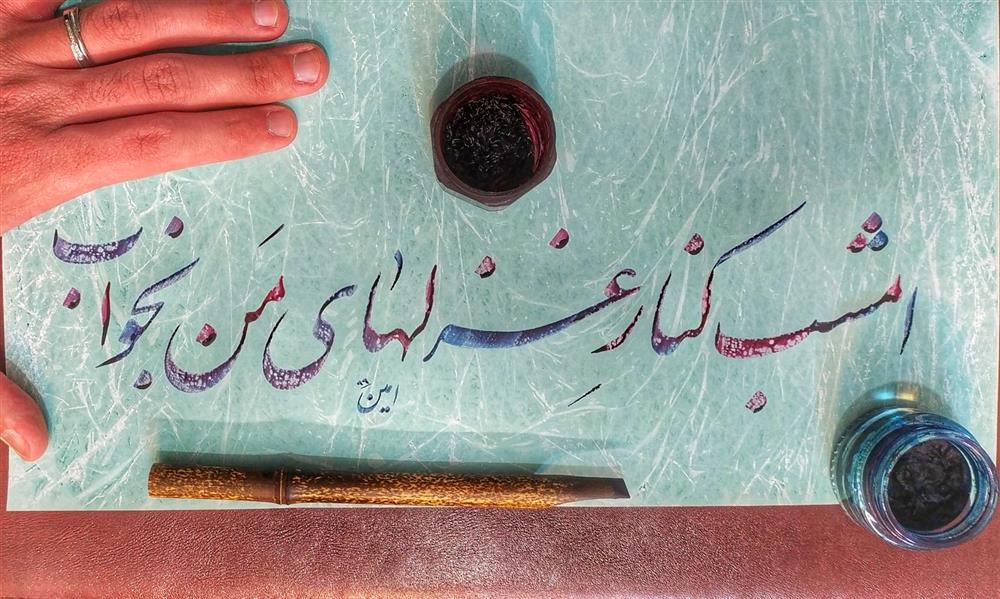 امشب کنارِ غزلهای من بخواب
امین